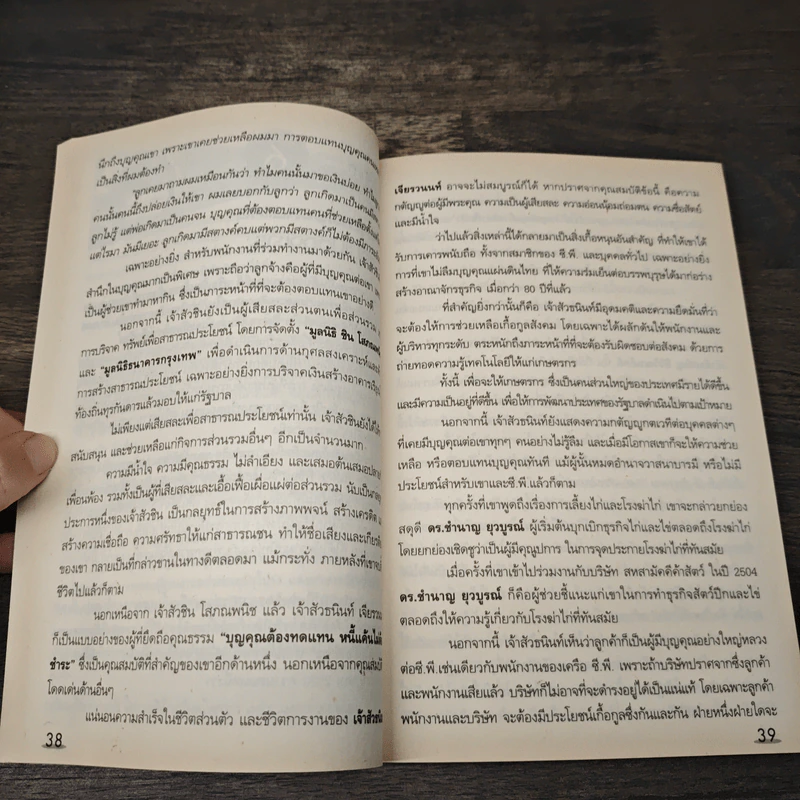 นึกถึงบุญคุณเขา เพราะเขาเคยช่วยเหลือผมมา การตอบแทนบุญคุณคน
เป็นสิ่งที่ผมต้องทำ
"ลูกเคยมาถามผมเหมือนกันว่า ทำไมคนนั้นมาขอเงินบ่อย
คนนั้นคนนี้ถึงปล่อยเงินให้เขา ผมเลยบอกกับลูกว่า ลูกเกิดมาเป็นคน
ลูกไม่รู้ แต่พ่อเกิดมาเป็นคนจน บุญคุณที่ต้องตอบแทนคนที่ช่วยเหลือ
แต่ไรมา มันมีเยอะ ลูกเกิดมามีสตางค์คบแต่พวกมีสตางค์ก็ไม่ต้องมี
เฉพาะอย่างยิ่ง สำหรับพนักงานที่ร่วมทำงานมาด้วยกัน เจ้า
สำนึกในบุญคุณมากเป็นพิเศษ เพราะถือว่าลูกจ้างคือผู้ที่มีบุญคุณต่อเขา
เป็นผู้ช่วยเขาทำมาหากิน ซึ่งเป็นภาระหน้าที่ที่จะต้องตอบแทนเขาอย่างดี
นอกจากนี้ เจ้าสัวชินยังเป็นผู้เสียสละส่วนตนเพื่อส่วนรวม
การบริจาค ทรัพย์เพื่อสาธารณประโยชน์ โดยการจัดตั้ง "มูลนิธิ ชิน โสภณพนิ
และ "มูลนิธิธนาคารกรุงเทพ" เพื่อดำเนินการด้านกุศลสงเคราะห์และ
การสร้างสาธารณประโยชน์ เฉพาะอย่างยิ่งการบริจาคเงินสร้างอาคาร
ท้องถิ่นทุรกันดารแล้วมอบให้แก่รัฐบาล
ไม่เพียงแต่เสียสละเพื่อสาธารณประโยชน์เท่านั้น เจ้าสัวชินยังได้
สนับสนุน และช่วยเหลือแก่กิจการส่วนรวมอื่นๆ อีกเป็นจำนวนมาก
ความมีน้ำใจ ความมีคุณธรรม ไม่ลำเอียง และเสมอต้นเสมอปลาย
เพื่อนพ้อง รวมทั้งเป็นผู้ที่เสียสละและเอื้อเฟื้อเผื่อแผ่ต่อส่วนรวม นับเป็น
ประการหนึ่งของเจ้าสัวชิน เป็นกลยุทธ์ในการสร้างภาพพจน์ สร้างเครดิต
สร้างความเชื่อถือ ความศรัทธาให้แก่สาธารณชน ทำให้ชื่อเสียงและเกียรติ
ของเขา กลายเป็นที่กล่าวขานในทางดีตลอดมา แม้กระทั่ง ภายหลังที่เขา
ชีวิตไปแล้วก็ตาม
นอกเหนือจาก เจ้าสัวชิน โสภณพนิช แล้ว เจ้าสัวธนินท์ เจียรว
ก็เป็นแบบอย่างของผู้ที่ยึดถือคุณธรรม "บุญคุณต้องทดแทน หนี้แค้นไม่
ชำระ" ซึ่งเป็นคุณสมบัติที่สำคัญของเขาอีกด้านหนึ่ง นอกเหนือจากคุณสมบั
โดดเด่นด้านอื่นๆ
แน่นอนความสำเร็จในชีวิตส่วนตัว และชีวิตการงานของ เจ้าสัวธนิ
38
เจียรวนนท์ อาจจะไม่สมบูรณ์ก็ได้ หากปราศจากคุณสมบัติข้อนี้ คือความ
กตัญญูต่อผู้มีพระคุณ ความเป็นผู้เสียสละ ความอ่อนน้อมถ่อมตน ความซื่อสัตย์
และมีน้ำใจ
ว่าไปแล้วสิ่งเหล่านี้ได้กลายมาเป็นสิ่งเกื้อหนุนอันสำคัญ ที่ทำให้เขาได้
รับการเคารพนับถือ ทั้งจากสมาชิกของ ซี.พี. และบุคคลทั่วไป เฉพาะอย่างยิ่ง
การที่เขาไม่ลืมบุญคุณแผ่นดินไทย ที่ให้ความร่มเย็นต่อบรรพบุรุษได้มาก่อร่าง
สร้างอาณาจักรธุรกิจ เมื่อกว่า 80 ปีที่แล้ว
ที่สำคัญยิ่งกว่านั้นก็คือ เจ้าสัวธนินท์มีอุดมคติและความยึดมั่นที่ว่า
จะต้องให้การช่วยเหลือเกื้อกูลสังคม โดยเฉพาะได้ผลักดันให้พนักงานและ
ผู้บริหารทุกระดับ ตระหนักถึงภาระหน้าที่ที่จะต้องรับผิดชอบต่อสังคม ด้วยการ
ถ่ายทอดความรู้เทคโนโลยีให้แก่เกษตรกร
ทั้งนี้ เพื่อจะให้เกษตรกร ซึ่งเป็นคนส่วนใหญ่ของประเทศมีรายได้ดีขึ้น
และมีความเป็นอยู่ที่ดีขึ้น เพื่อให้การพัฒนาประเทศของรัฐบาลดำเนินไปตามเป้าหมาย
นอกจากนี้ เจ้าสัวธนินท์ยังแสดงความกตัญญูกตเวทีต่อบุคคลต่างๆ
ที่เคยมีบุญคุณต่อเขาทุกๆ คนอย่างไม่รู้ลืม และเมื่อมีโอกาสเขาก็จะให้ความช่วย
เหลือ หรือตอบแทนบุญคุณทันที แม้ผู้นั้นหมดอำนาจวาสนาบารมี หรือไม่มี
ประโยชน์สำหรับเขาและซี.พี.แล้วก็ตาม
ทุกครั้งที่เขาพูดถึงเรื่องการเลี้ยงไก่และโรงฆ่าไก่ เขาจะกล่าวยกย่อง
สดุดี ดร.ชำนาญ ยุวบูรณ์ ผู้เริ่มต้นบุกเบิกธุรกิจไก่และไข่ตลอดถึงโรงฆ่าไก่
โดยยกย่องเชิดชูว่าเป็นผู้มีคุณูปการ ในการจุดประกายโรงฆ่าไก่ที่ทันสมัย
เมื่อครั้งที่เขาเข้าไปร่วมงานกับบริษัท สหสามัคคีค้าสัตว์ ในปี 2504
ดร.ชำนาญ ยุวบูรณ์ ก็คือผู้ช่วยชี้แนะแก่เขาในการทำธุรกิจสัตว์ปีกและไข่
ตลอดถึงให้ความรู้เกี่ยวกับโรงฆ่าไก่ที่ทันสมัย
นอกจากนี้ เจ้าสัวธนินท์เห็นว่าลูกค้าก็เป็นผู้มีบุญคุณอย่างใหญ่หลวง
ต่อซี.พี.เช่นเดียวกับพนักงานของเครือ ซี.พี. เพราะถ้าบริษัทปราศจากซึ่งลูกค้า
และพนักงานเสียแล้ว บริษัทก็ไม่อาจที่จะดำรงอยู่ได้เป็นแน่แท้ โดยเฉพาะลูกค้า
พนักงานและบริษัท จะต้องมีประโยชน์เกื้อกูลซึ่งกันและกัน ฝ่ายหนึ่งฝ่ายใดจะ
39